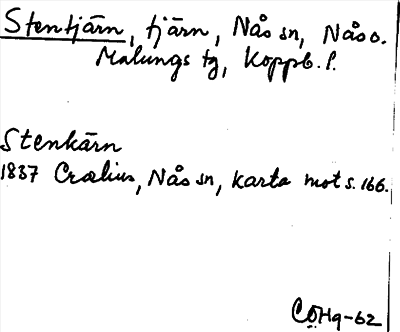 Stentjärn, tjärn, Nås sn, Nås o.
Malungs tg, Koppb. l.
Stenkärn
1837 Crælius, Nås sn, karta mot s. 166.
CÖHg-62